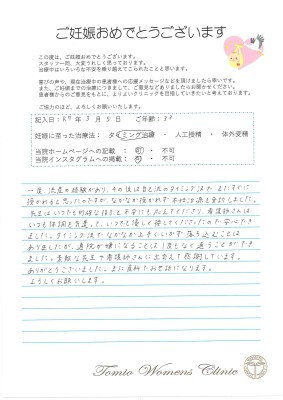 ご妊娠おめでとうございます
この度は、ご妊娠おめでとうございます。
スタッフ一同、大変うれしく思っております。
治療中はいろいろな不安を乗り越えてこられたことと思います。
喜びの声や、現在治療中の患者様への応援メッセージなどを頂けましたら幸いです。
また、ご妊娠までの治療につきまして、ご意見などありましたらお聞かせください。
患者様からのご意見をもとに、よりよいクリニックを目指していきたいと考えております。
ご協力のほど、よろしくお願いいたします。
記入日：R7 年 3 月 5 日 ご年齢：33
妊娠に至った治療法： タイミング治療 ・ 人工授精 ・ 体外受精
当院ホームページへの記載 ： 可 ・ 不可
当院インスタグラムへの掲載 ： 可 ・ 不可
一度、流産の経験があり、その後は自己流のタイミング法で またすぐに
授かれると思ったのですが、なかなか授かれず不妊治療を受診しました。
先生はいつでも的確な指示と不安にも応えてくださり、看護師さんは
いつも体調を気遣って、いつも優しく接してくださったので安心でき
ました。タイミング法でなかなか上手くいかず 落ち込むことは
ありましたが、通院が嫌になることは1度もなく通うことができ
ました。素敵な先生や看護師さんに出会えて感謝しています。
ありがとうございました。また産科でお世話になります。
よろしくお願いします。
Tomio Womens Clinic